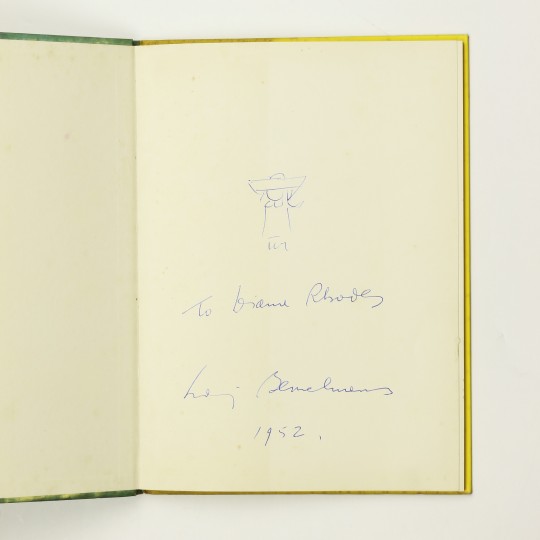 To Diana Rhodes
Ludwig Bemelmans
1952.